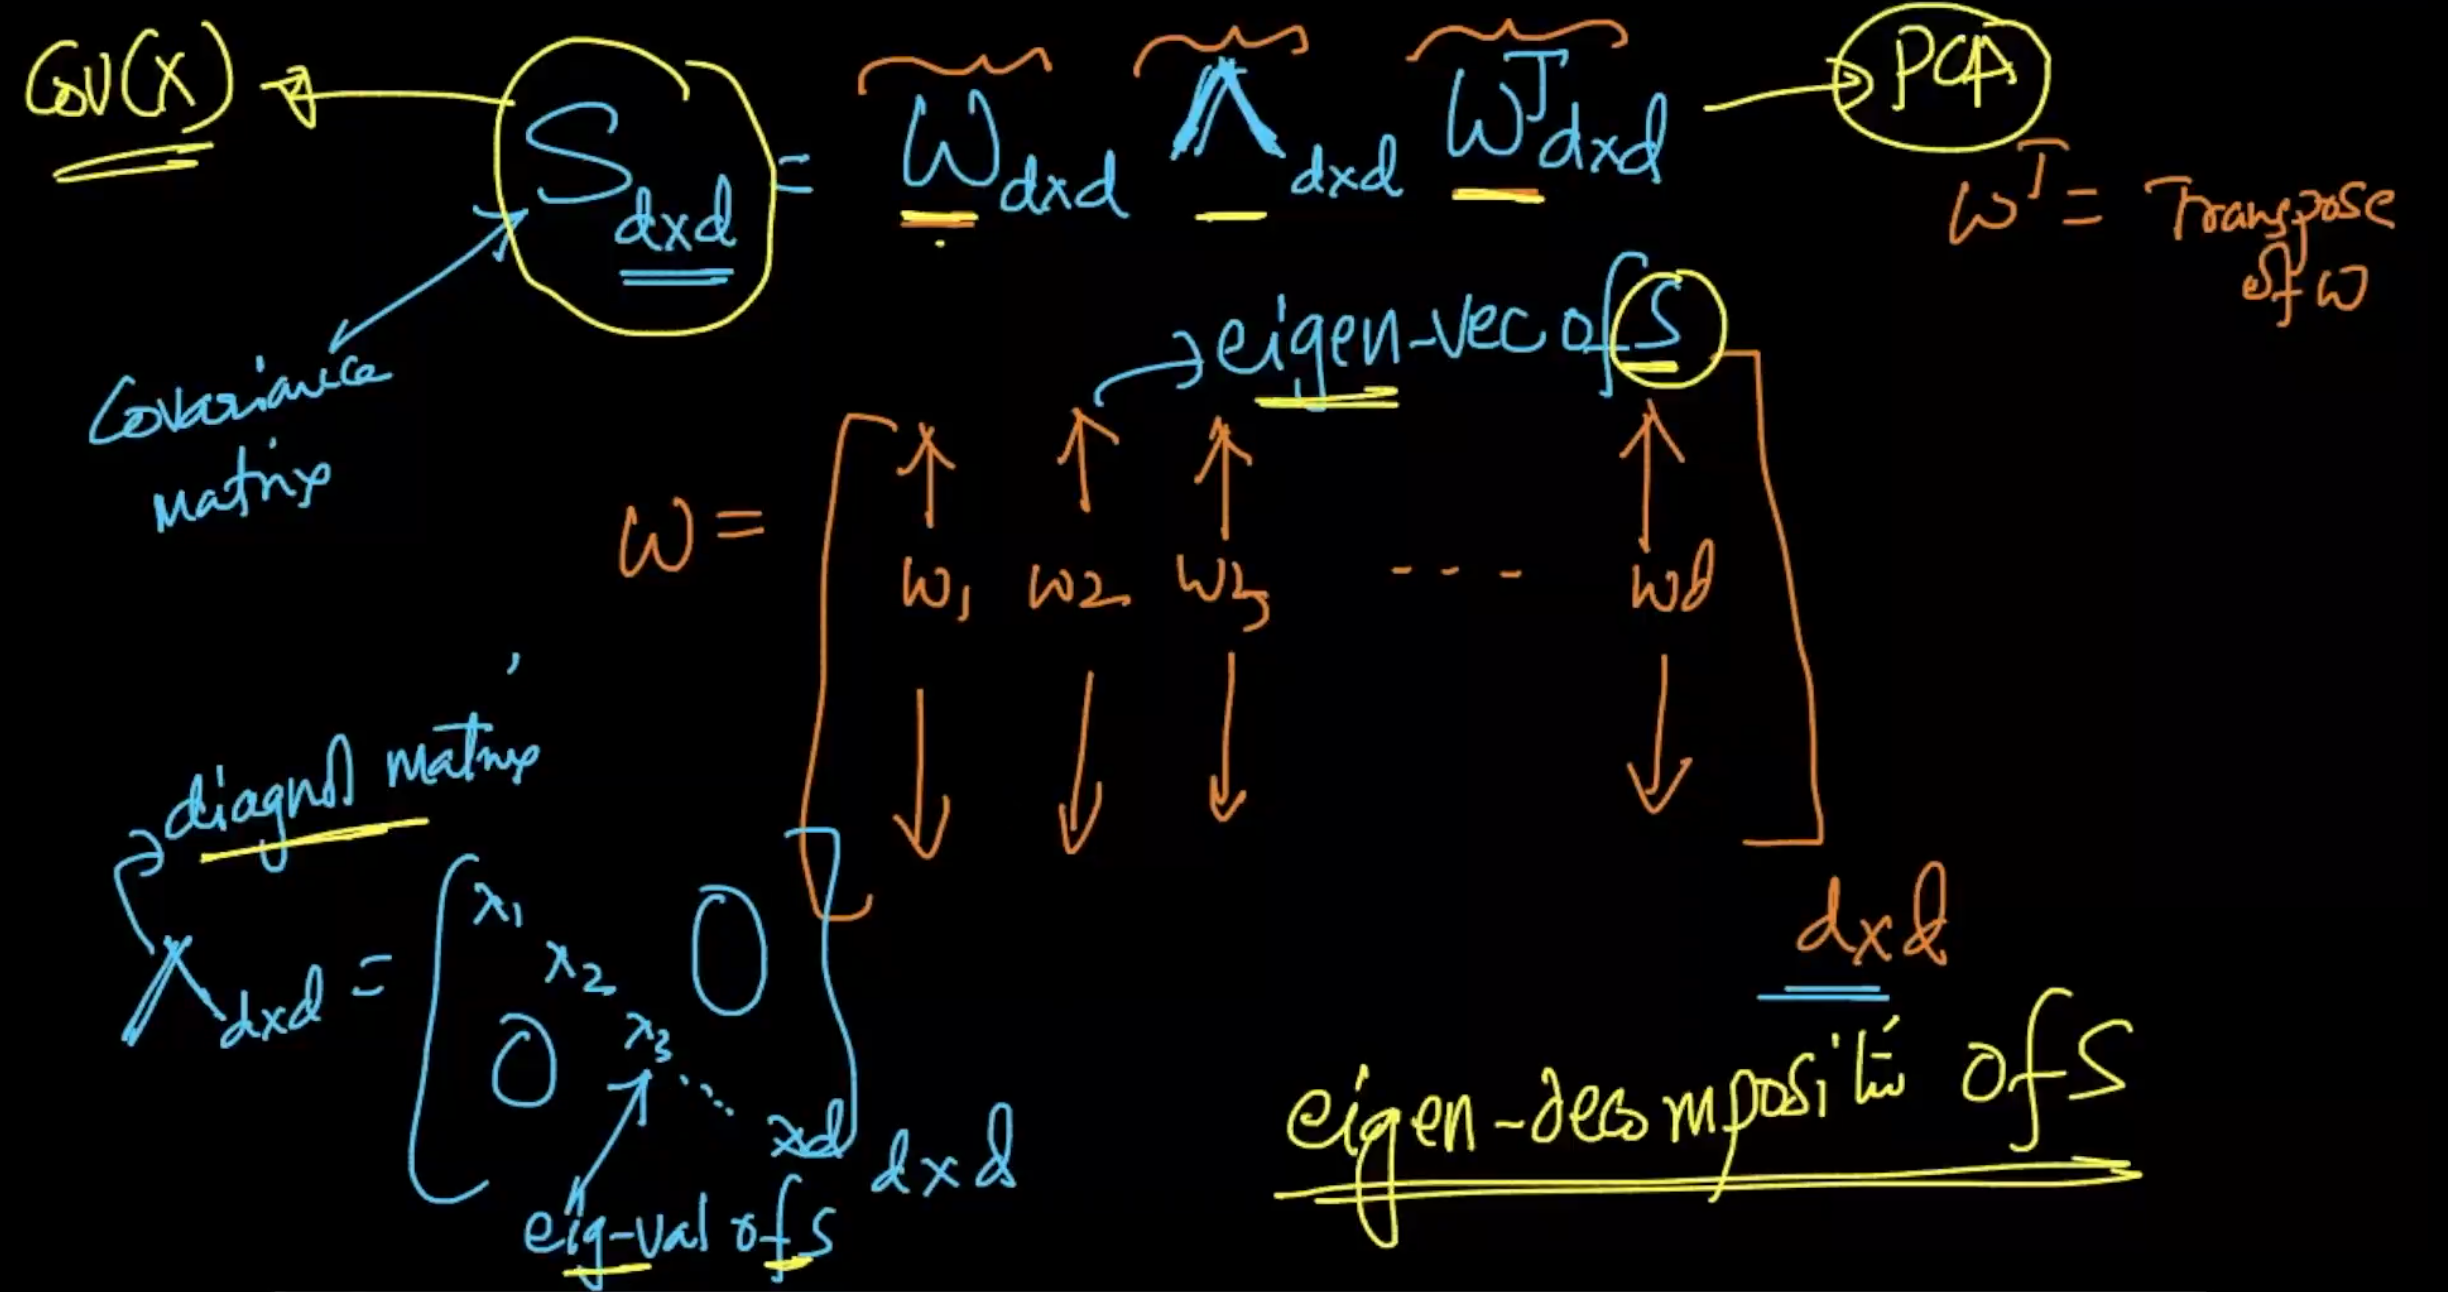 Cov(X) S dxd = W dxd Λ dxd W^T dxd PCA
W^T = Transpose of W
Covariance matrix
eigen-vec of S
W = [ W1 W2 W3 - - - Wd ] dxd
diagnol matrix
Λ dxd = [ λ1 λ2 λ3 ... λd 0 0 ] dxd
eig-val of S
eigen-decompositin of S